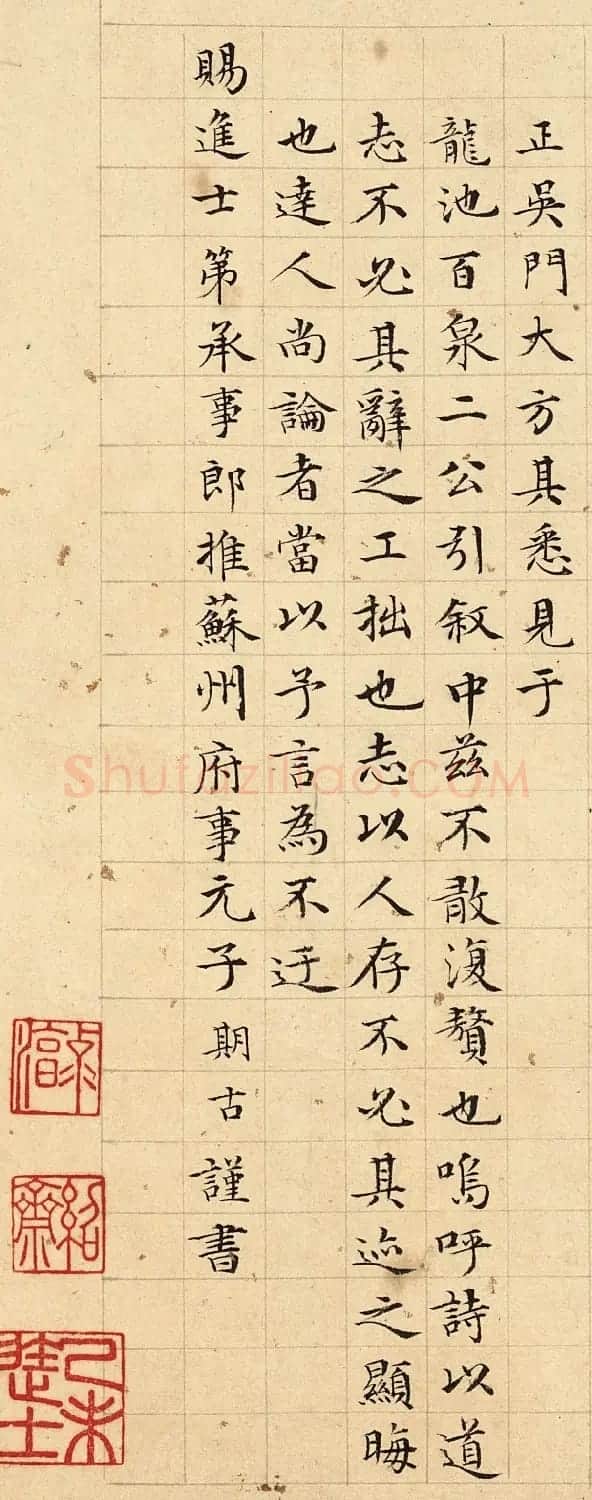 正吳門大方其悉見于
龍池百泉二公引敘中茲不敢復贅也嗚呼詩以道
志不必其辭之工拙也志以人存不必其迹之顯晦
也達人尚論者當以予言為不迂
賜進士第承事郎推蘇州府事元子期古謹書
己未進士
Shufaziliao.COM